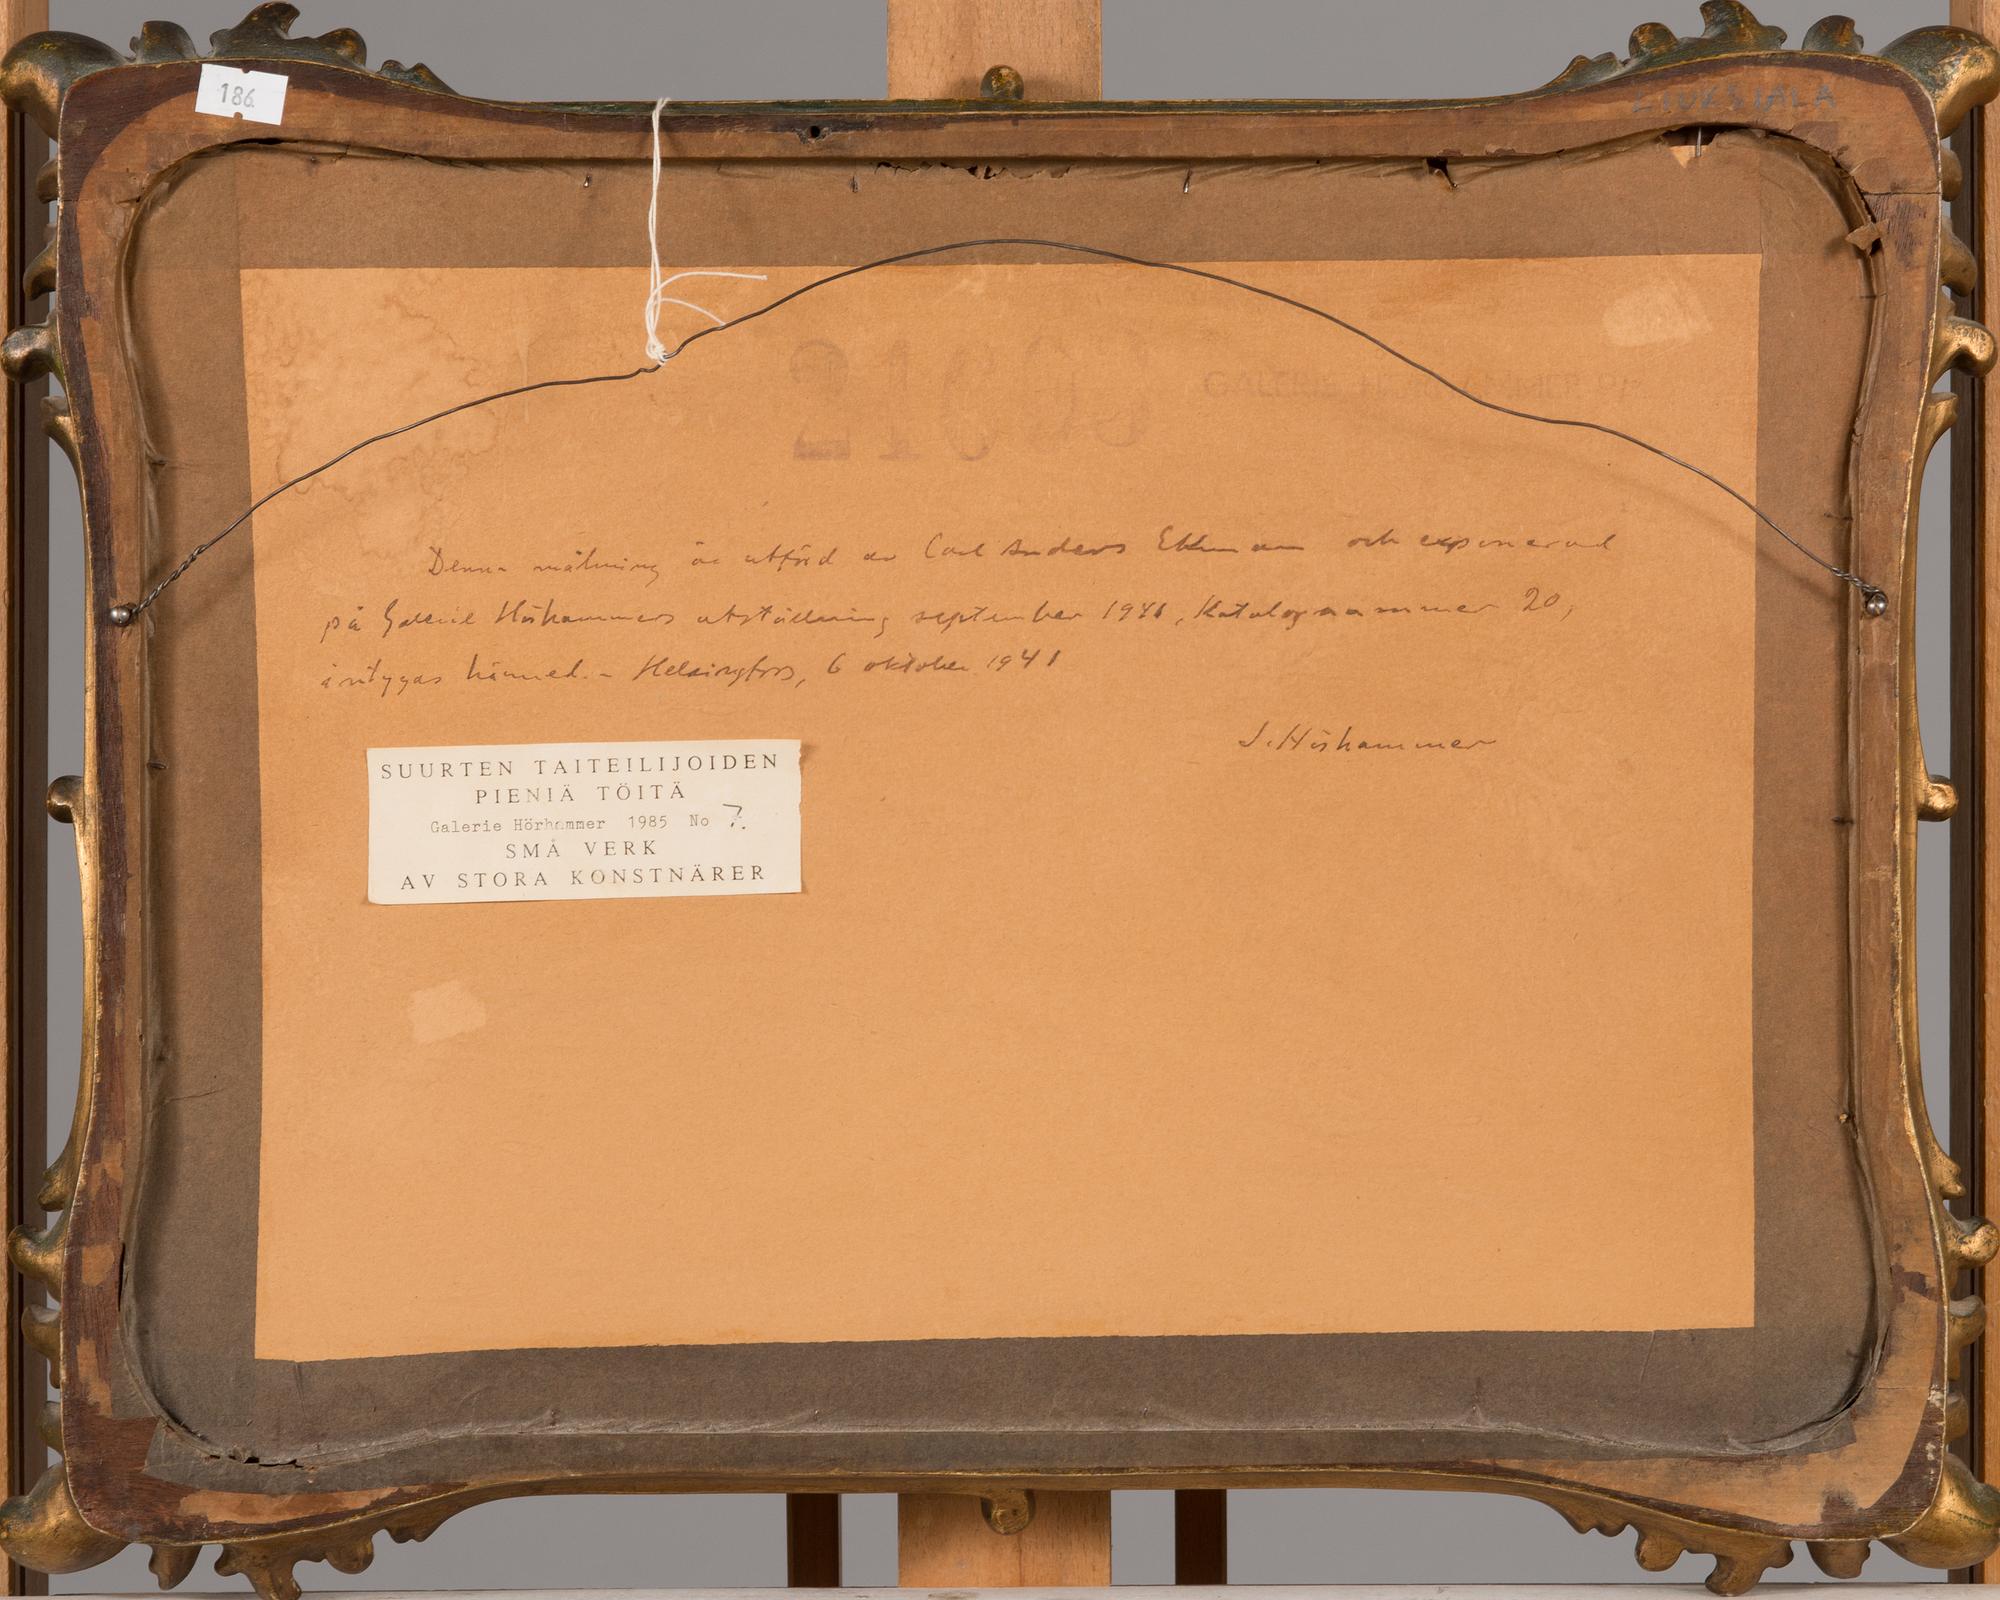 186
LIUKSIALA
21003
GALERIE HÖRHAMMER
Denna målning är utförd av Carl Anders Ekman och exponerad
på Galerie Hörhammers utställning september 1941, Katalognummer 20,
intygas härmed. - Helsingfors, 6 oktober 1941
I. Hörhammer
SUURTEN TAITEILIJOIDEN
PIENIÄ TÖITÄ
Galerie Hörhammer 1985 No 7.
SMÅ VERK
AV STORA KONSTNÄRER